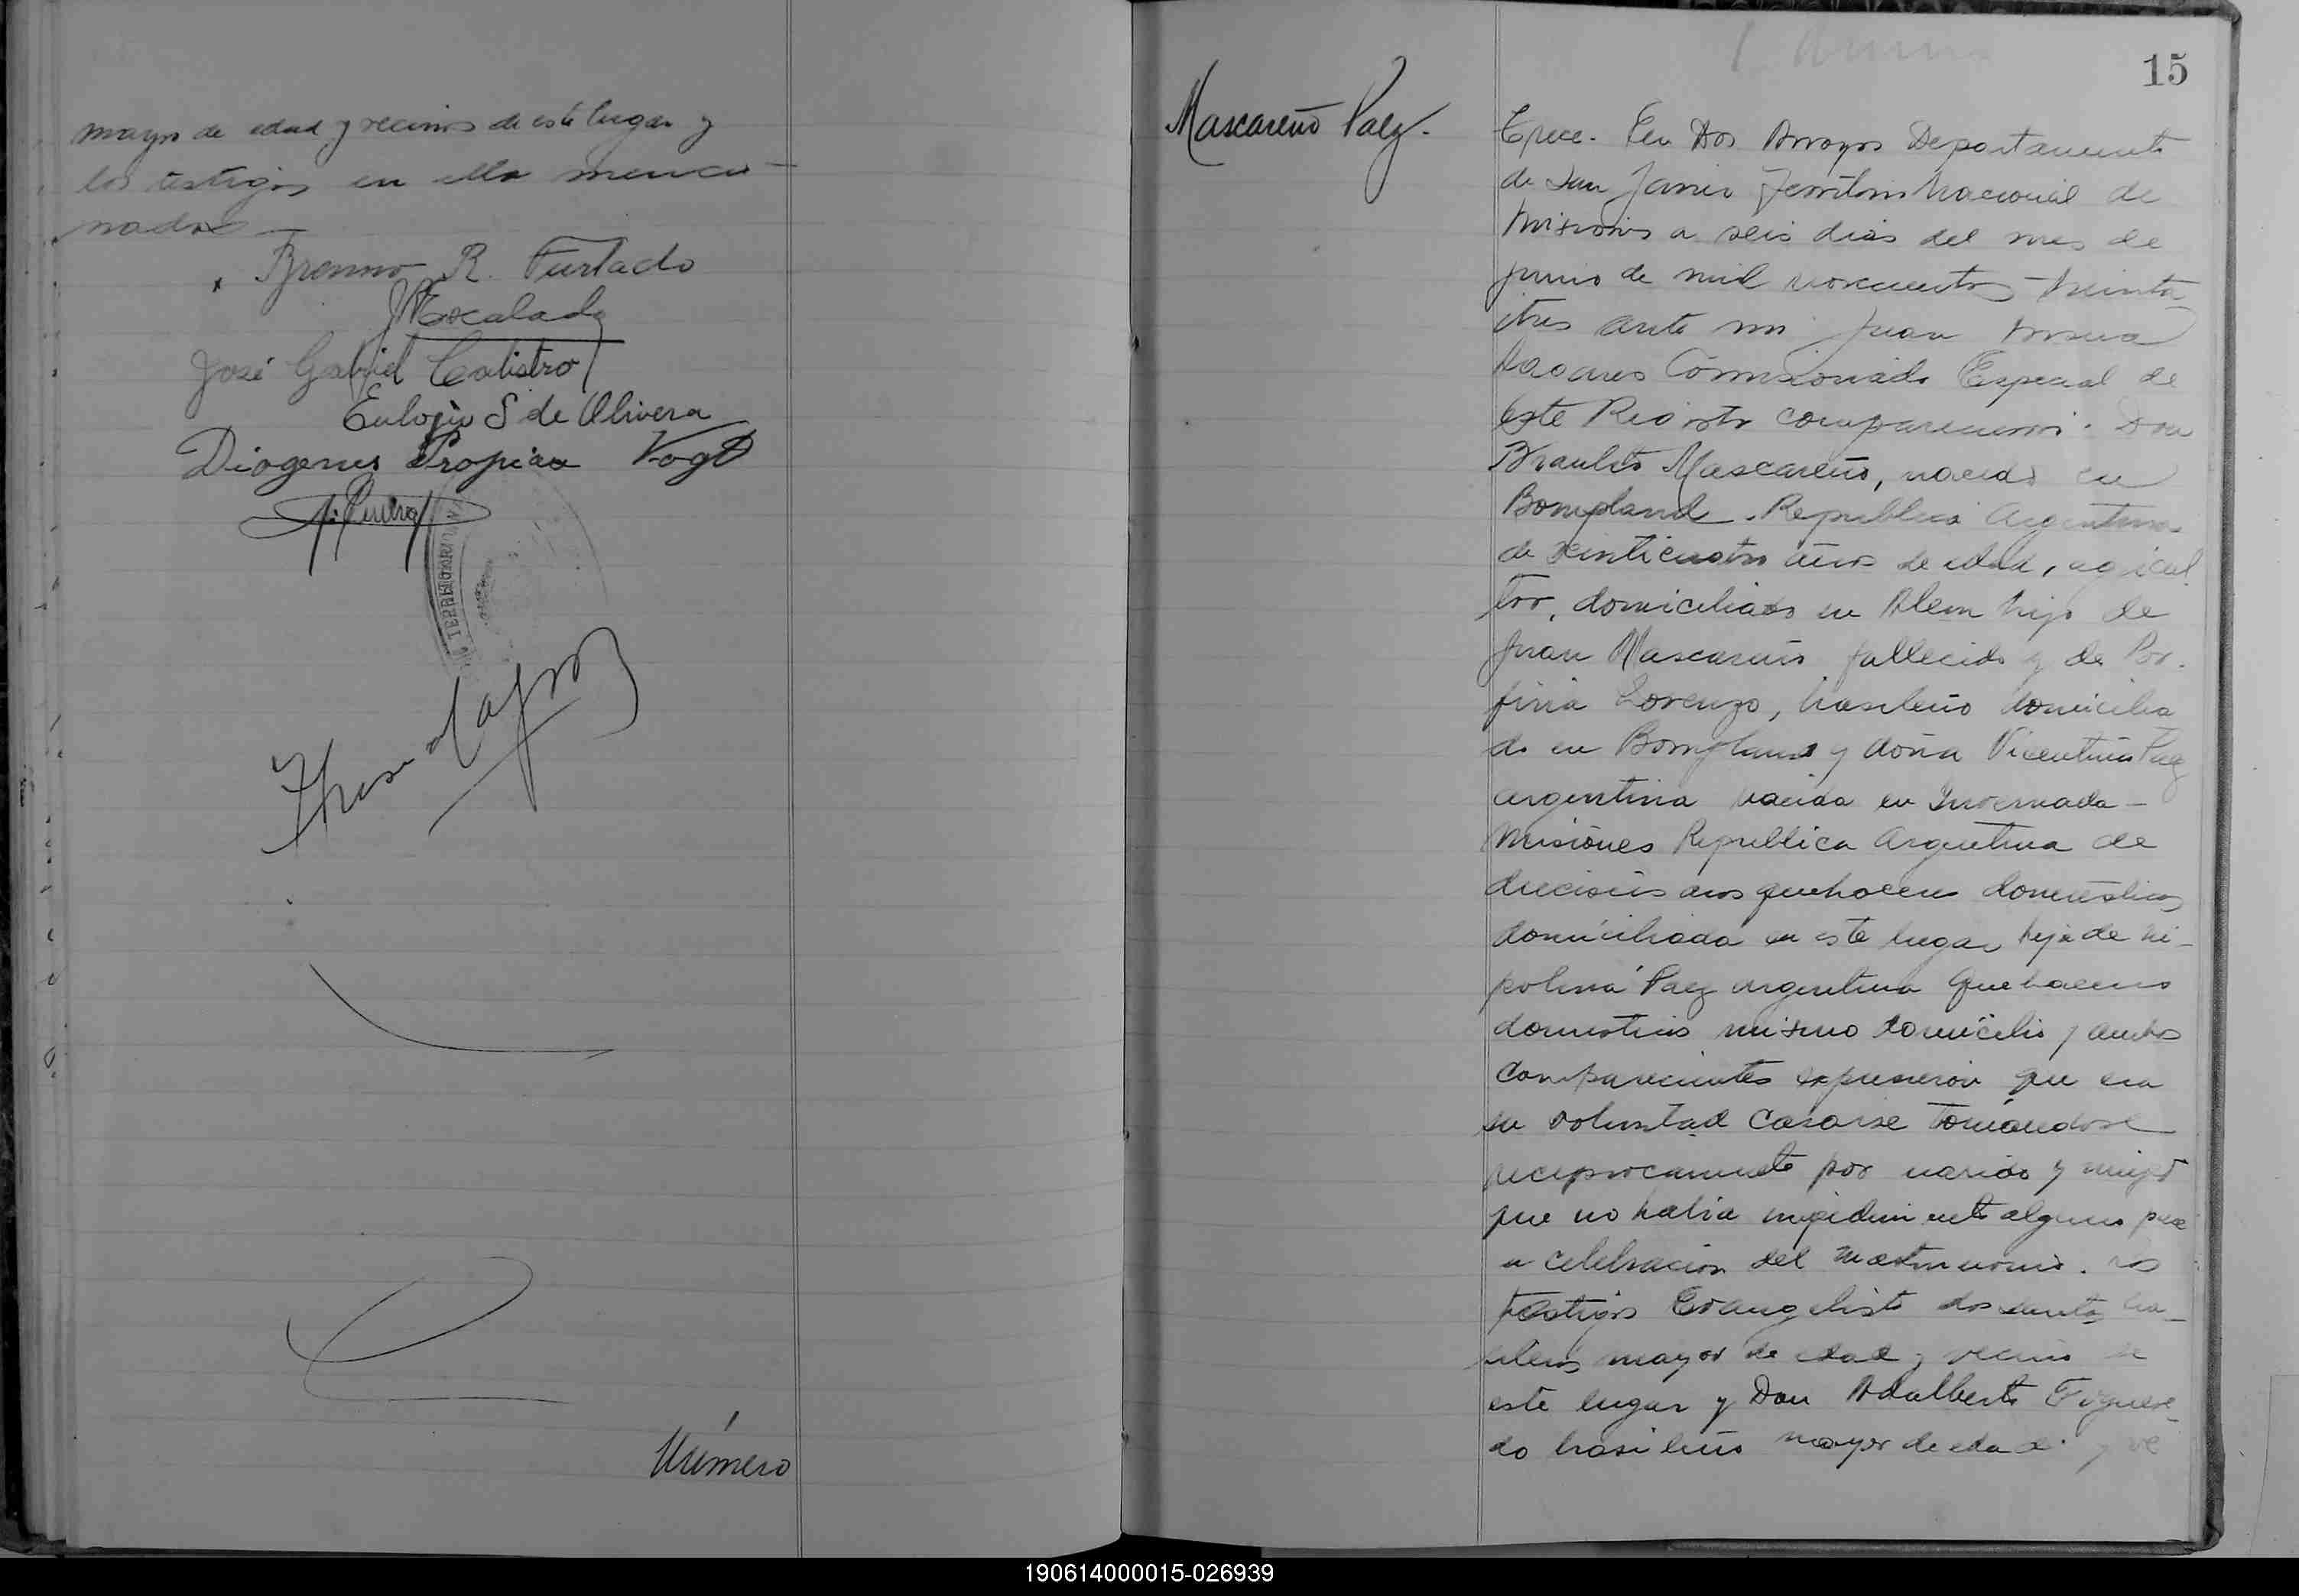 mayor de edad y vecinos de este lugar y
los testigos en ella mencio-
nados
Brenno R. Furtado
Escalada
José Gabriel Calistro
Eulogio S de Olivera
Diogenes Vogt
TERRITORIO
Número
15
Mascareño Paez.
Trece. En Dos Arroyos Departamento
de San Javier Territorio Nacional de
Misiones a seis dias del mes de
junio de mil novecientos treinta
itres ante mi Juan
Comisionado Especial de
este Registro comparecieron. Don
Braulio Mascareño, nacido en
Bompland. Republica Argentina
de veinticuatro años de edad, agricul
tor, domiciliado en Alem hijo de
Juan Mascareño fallecido y de Por-
firia Lorenzo, brasileño domicilia
do en Bompland y doña Vicentina Paez
argentina nacida en Invernada-
Misiones Republica Argentina de
dieciseis años quehaceres domesticos
domiciliada en este lugar hija de Hi-
polina Paez argentina quehaceres
domesticos mismo domicilio y ambos
comparecientes expusieron que era
su voluntad casarse tomandose
reciprocamente por marido y mujer
que no habia impedimento alguno para
a celebracion del matrimonio. Los
testigos Evangelisto dos Santos bra-
sileño mayor de edad y vecino de
este lugar y Don Adalberto Figuere-
do brasileño mayor de edad y ve
190614000015-026939